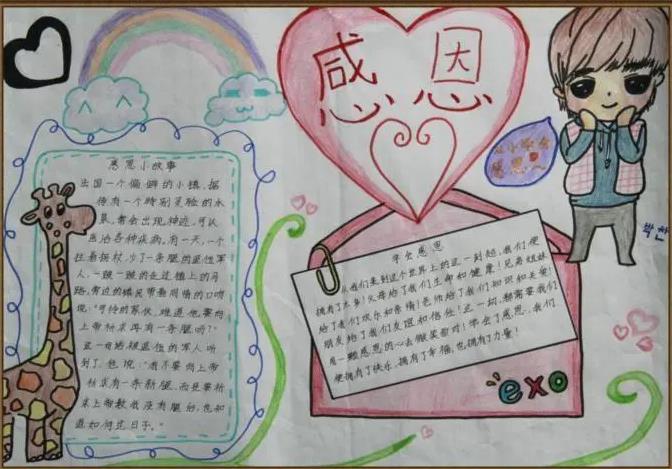 感恩
感恩小故事
法国一个偏僻的小镇,据
传有一个特别灵验的水
泉,常会出现神迹,可以
医治各种疾病。有一天,一个
拄着拐杖,少了一条腿的退伍军
人,一跛一跛的走过镇上的马
路,旁边的镇民带着同情的口吻
说:"可怜的家伙,难道他要向
上帝祈求再有一条腿吗?"
这一句话被退伍的军人听
到了,他说:"我不要向上帝
祈求有一条新腿,而是要祈
求上帝教我没有腿后,也知
道如何过日子。"
学会感恩
从我们来到这个世界上的这一刻起,我们便
拥有了太多!父母给了我们生命和健康!兄弟姐妹
给了我们快乐和亲情!老师给了我们知识和关爱!
朋友给了我们友谊和信任!这一切,都需要我们
用一颗感恩的心去微笑面对!学会了感恩,我们
便拥有了快乐,拥有了幸福,也拥有了力量!
exo
从小学会
感恩